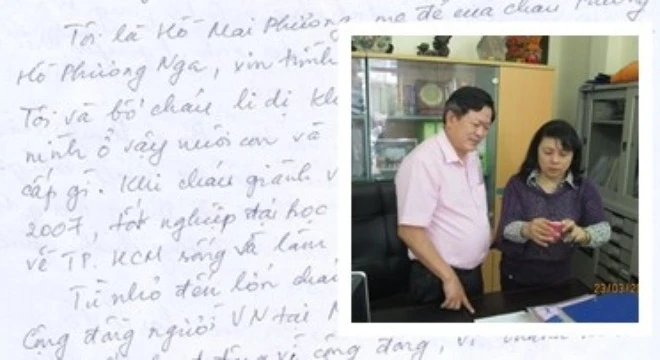 Tôi là Hồ Mai Phương, mẹ đẻ của cháu Trương
Hồ Phương Nga, xin trình
Tôi và bố cháu li dị khi
mình ở vậy nuôi con và
cấp gì. Khi cháu giành v
2007, tốt nghiệp đại học
về TP. HCM sống và làm
Từ nhỏ đến lớn cháu
Cộng đồng người VN tại N
vì cộng đồng, vì
23/03/20